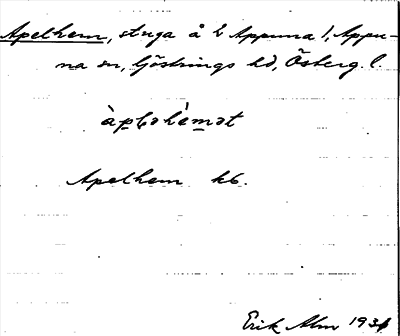 Apelhem, stuga å 2 Appuna 1, Appu-
na sn, Göstrings hd, Österg. l.
àpləhèmət
Apelhem kb.
Erik Alm 193